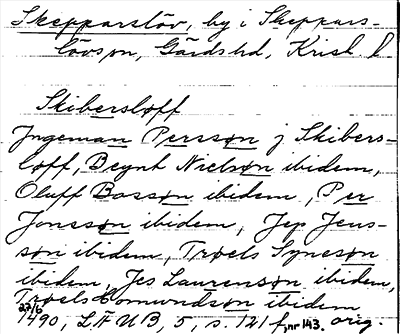 Skepparslöv, by i Skeppars-
lövs sn, Gärds hd, Krist. l
Skibersloff
Jngeman Persson j Skibers-
loff, Beynt Nielson ibidem,
Oluff Bosson ibidem, Per
Jonsson ibidem, Jep Jens-
son ibidem, Troels Syneson
ibidem, Jes Laurenson ibidem,
Troels Homundson ibidem
22/6 1490, LÄUB, 5, s. 121 f, nr 143. orig.